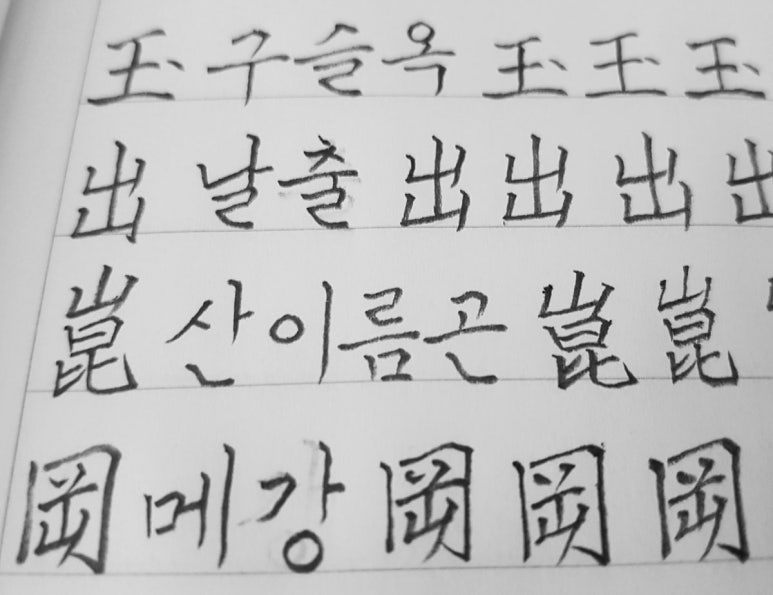 玉 구슬옥 玉 玉 玉
出 날출 出 出 出 出
崑 산이름곤 崑 崑
岡 메강 岡 岡 岡